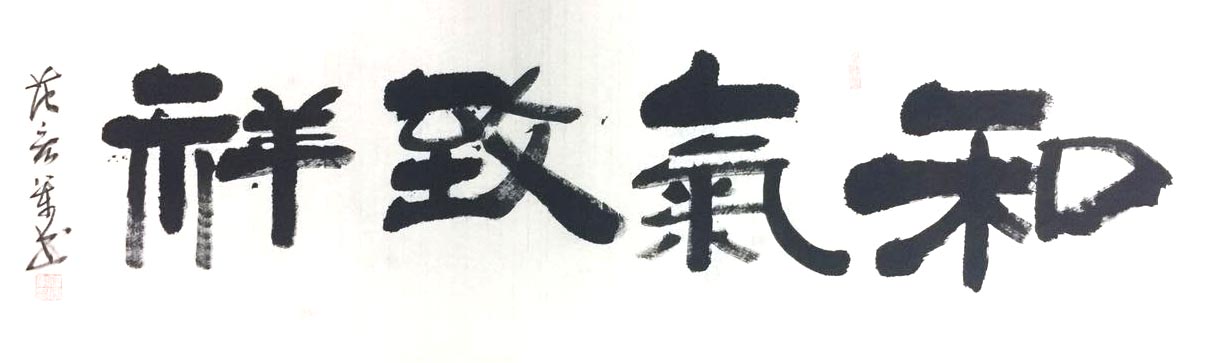 和氣致祥